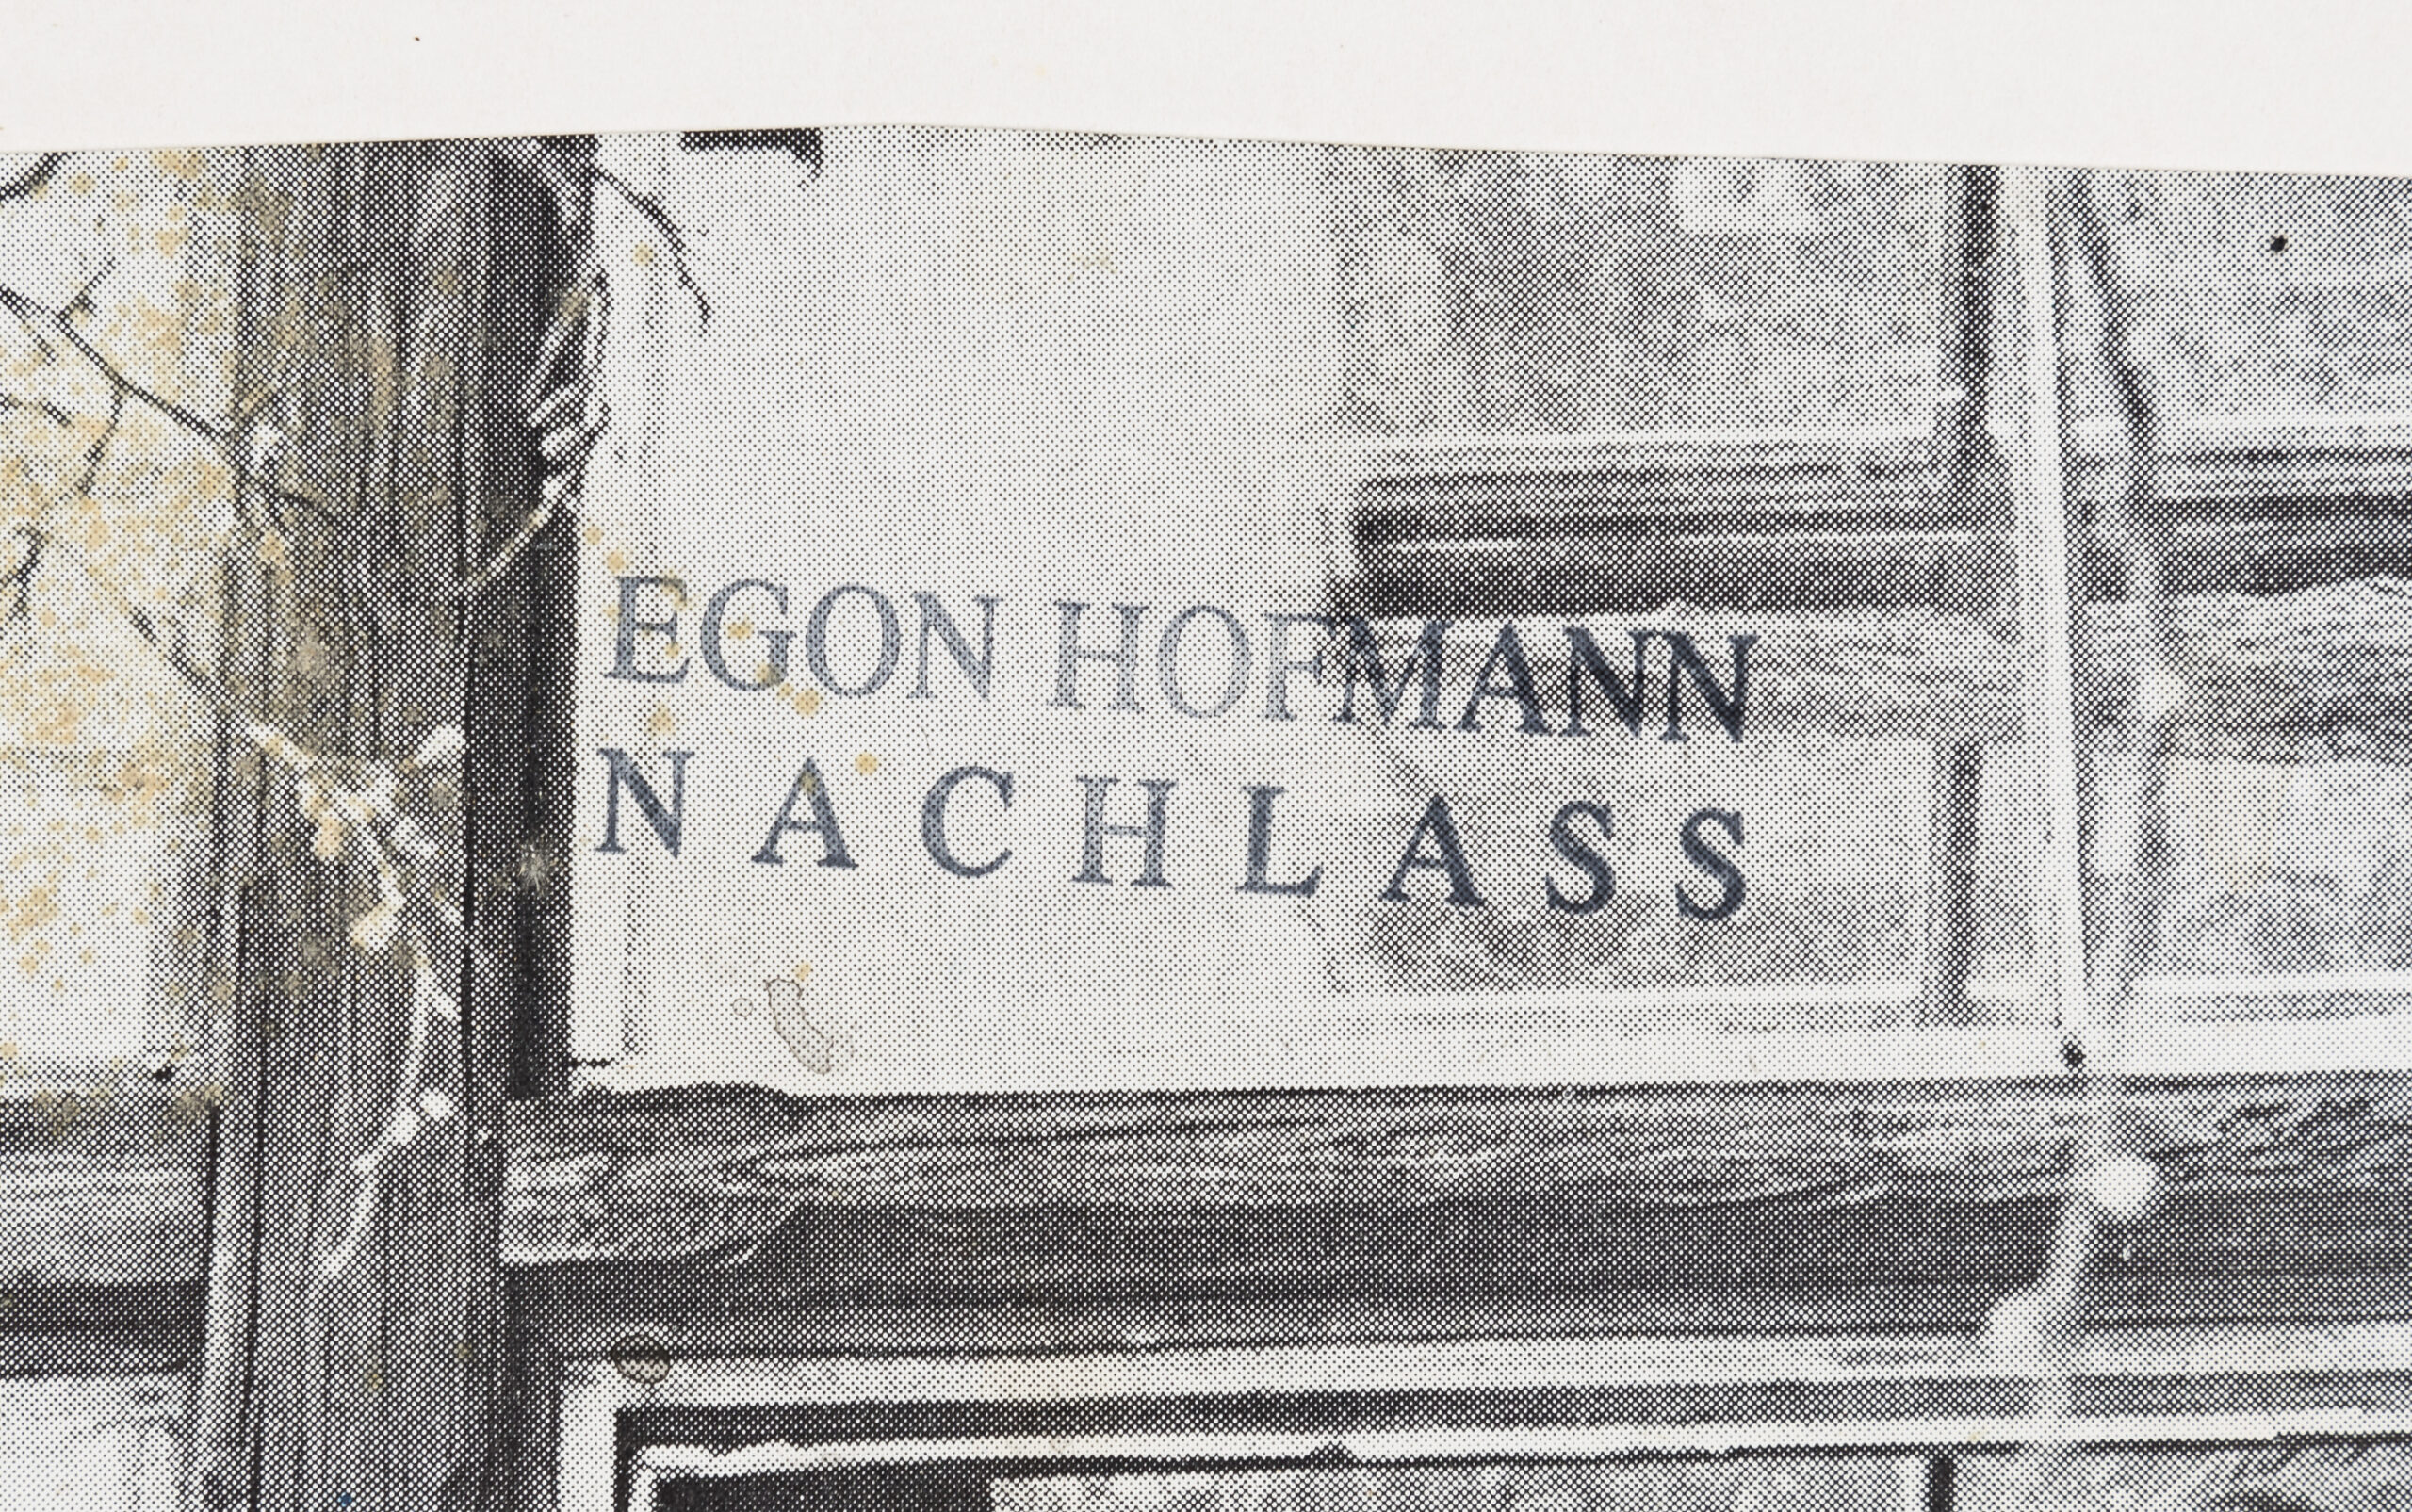 EGON HOFMANN
NACHLASS